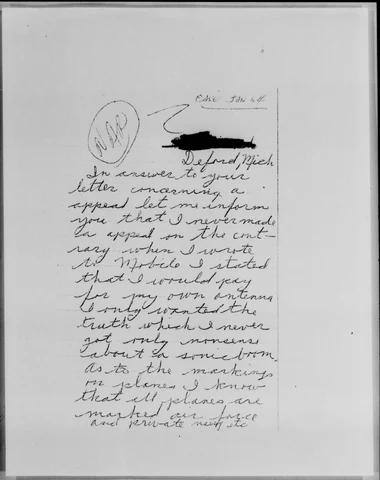 Deford, Mich
In answer to your
letter concerning a
appeal let me inform
you that I never made
a appeal on the cont-
rary when I wrote
to Mobile I stated
that I would pay
for my own antenna
I only wanted the
truth which I never
got only nonsense
about a sonic boom.
As to the markings
on planes I know
that all planes are
marked air force
and private navy etc